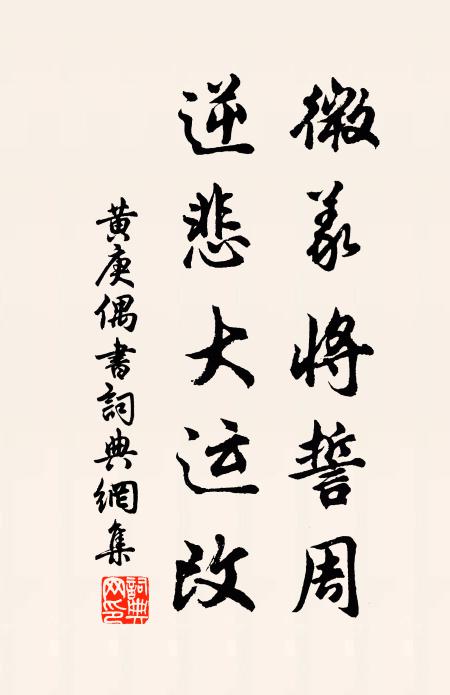 微義將誓周
逆悲大运改
黄庚偶書詞典網集
詞典网印